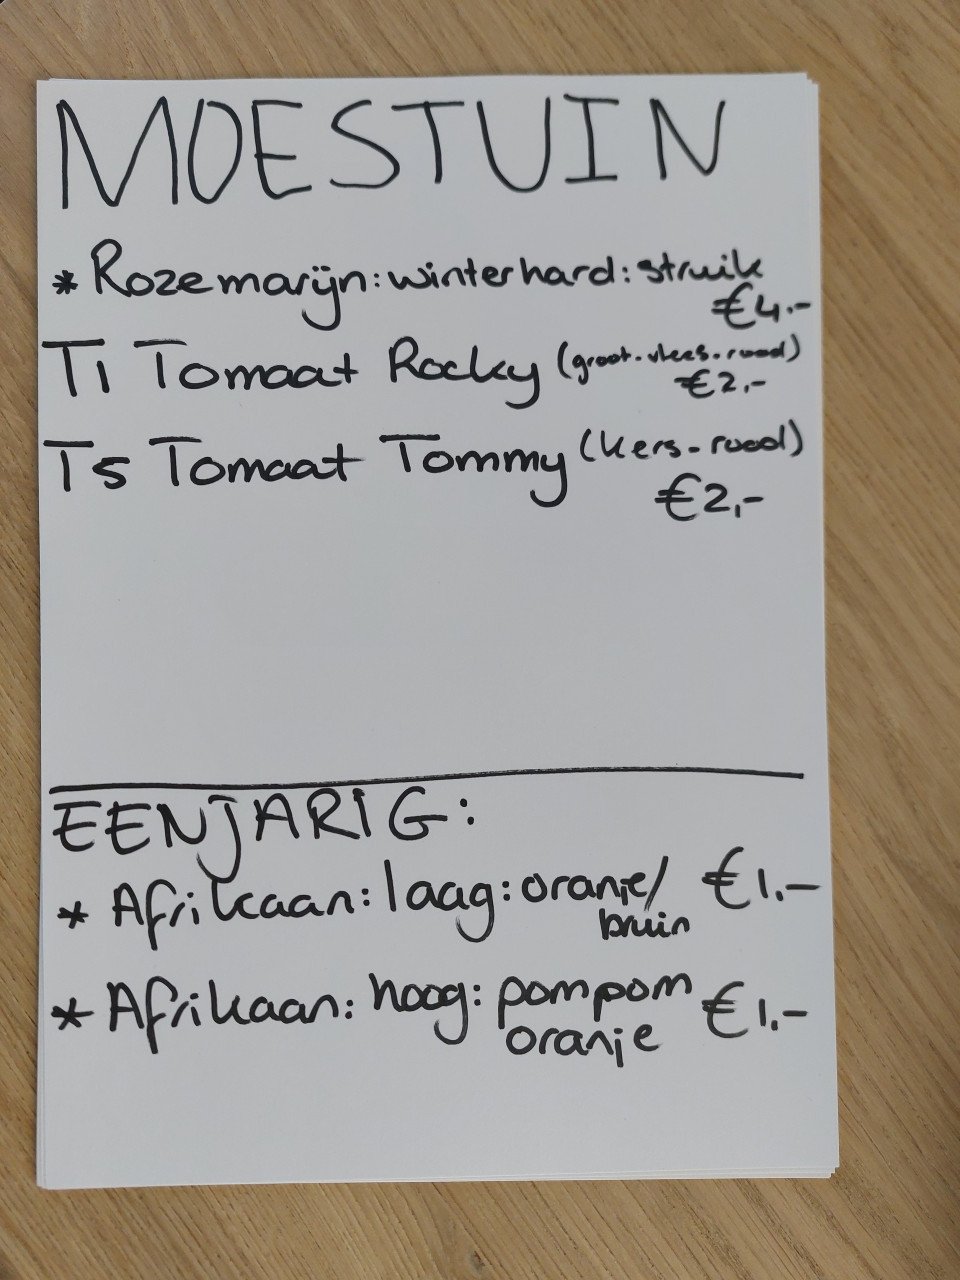 MOESTUIN
* Rozemarijn: winterhard: struik
€4.-
T1 Tomaat Rocky (groot-vlees-rood)
€2,-
T5 Tomaat Tommy (kers-rood)
€2,-
EENJARIG:
* Afrikaan: laag: oranje/ €1,-
bruin
* Afrikaan: hoog: pompom €1,-
oranje